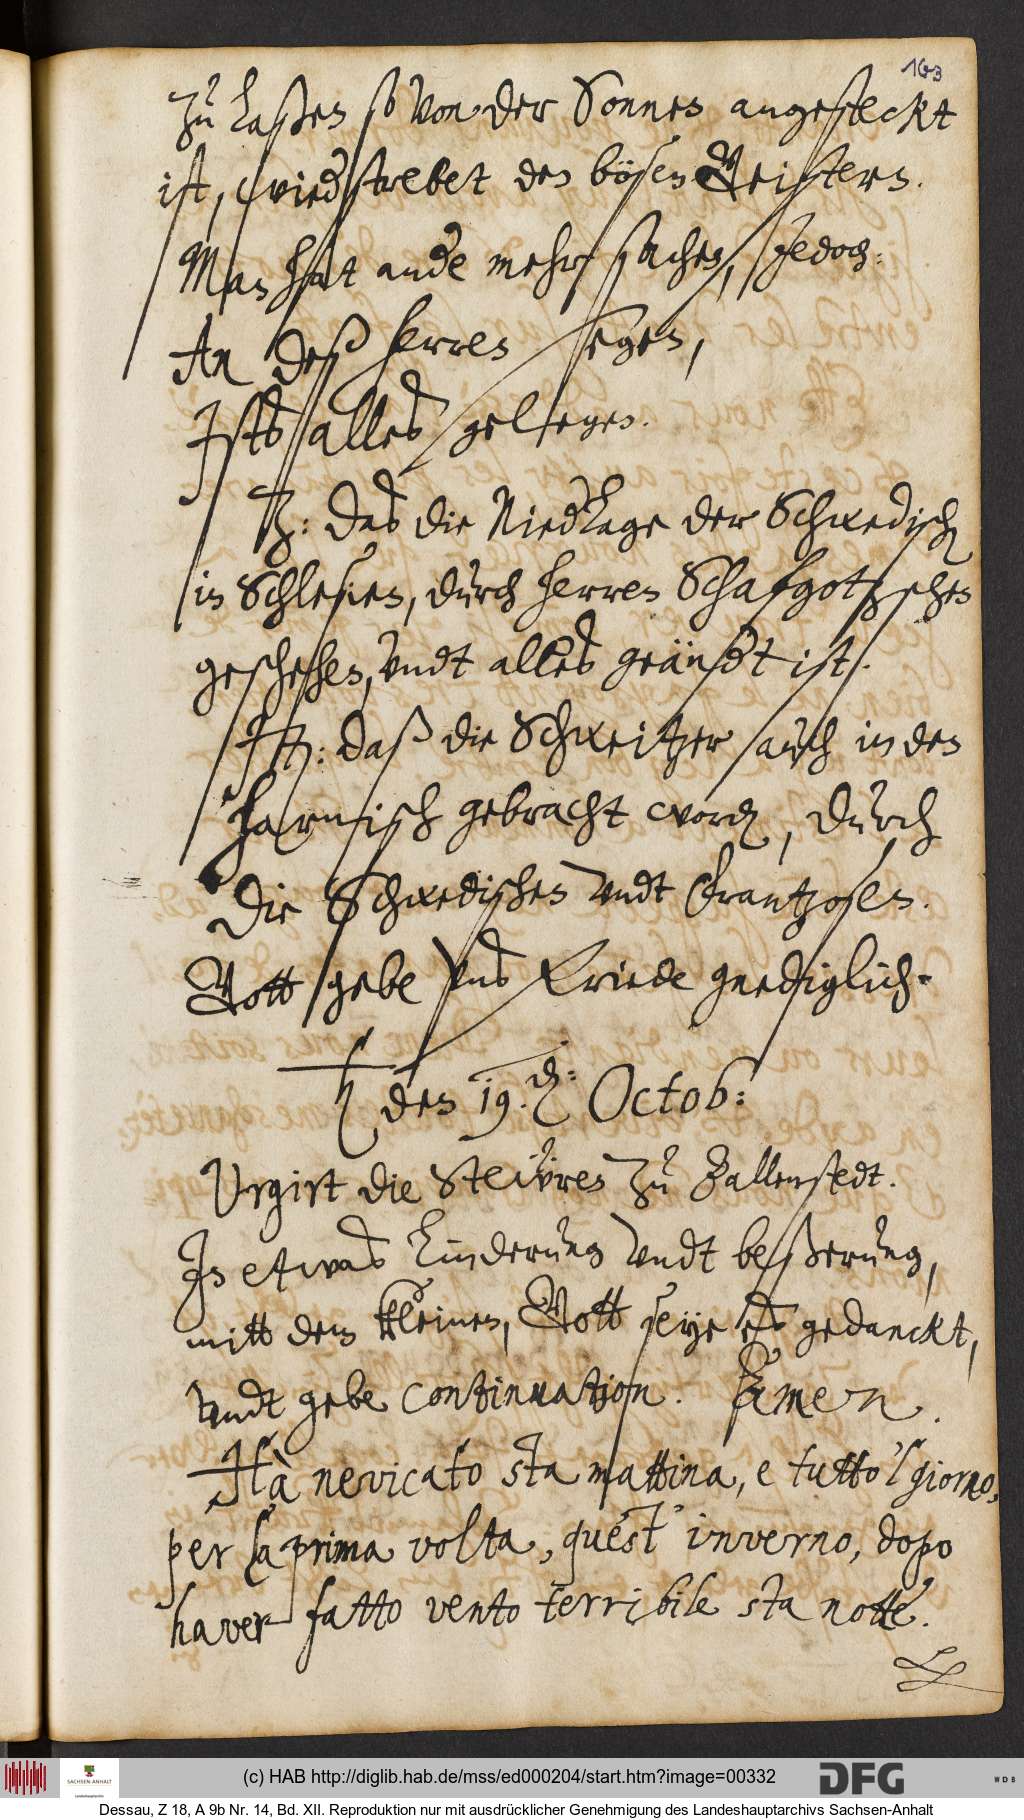 163
zu laßen so von der Sonnen angesteckt
ist, wiedstrebet den bösen Geistern.
Man hat ande mehr sachen, Jedoch:
An deß herren segen,
Ists alles gelegen.
Zu: das die Niedlage der Schwedisch
in Schlesien, durch herren Schafgotzschen
geschehen, undt alles geändt ist.
It: daß die Schweitzer auch in den
harnisch gebracht word, durch
die Schwedischen undt Frantzosen.
Gott gebe uns Friede gnediglich.
♄ den 19. Octob:
Urgirt die Steüren zu Ballenstedt.
In etwas linderung undt beßerung,
mitt dem kleinen, Gott seye es gedanckt,
undt gebe continuation. Amen.
Hà nevicato sta mattina, e tutto 'l giorno,
per la prima volta, quést' inverno, dopo
haver fatto vento terribile sta notte.
SACHSEN-ANHALT
(c) HAB http://diglib.hab.de/mss/ed000204/start.htm?image=00332
DFG
WDB
Dessau, Z 18, A 9b Nr. 14, Bd. XII. Reproduktion nur mit ausdrücklicher Genehmigung des Landeshauptarchivs Sachsen-Anhalt